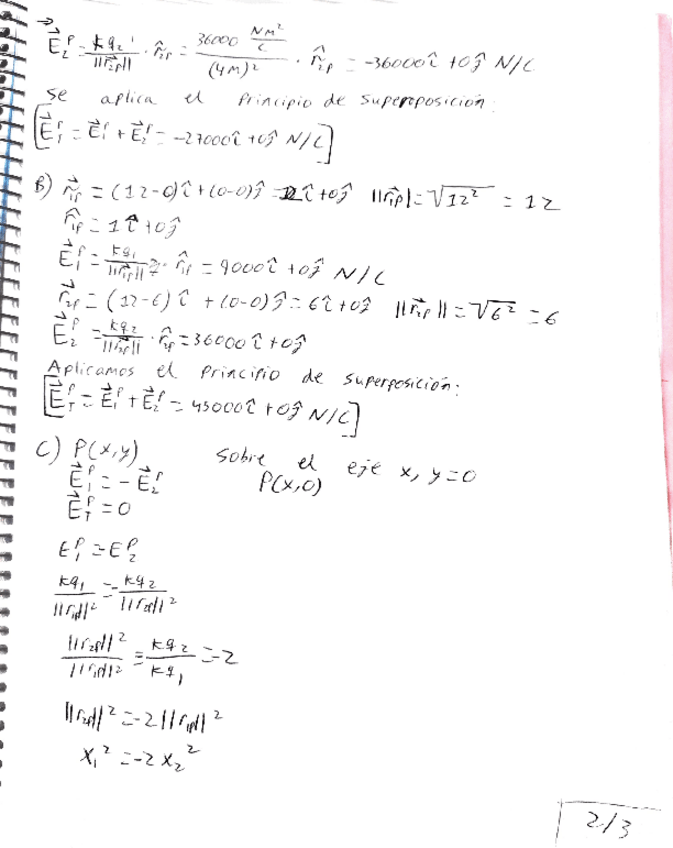 E₂ᴾ = kq₂/||r₂p|| · r̂₂p = 36000 NM²/C / (4M)² · r̂₂p = -36000î + 0ĵ N/C
Se aplica el Principio de superposición:
[E_Tᴾ = E₁ᴾ + E₂ᴾ = -27000î + 0ĵ N/C]
B) r₁p = (12-0)î + (0-0)ĵ = 12î + 0ĵ ||r₁p|| = √12² = 12
r̂₁p = 1î + 0ĵ
E₁ᴾ = kq₁/||r₁p||² · r̂₁p = 9000î + 0ĵ N/C
r₂p = (12-6)î + (0-0)ĵ = 6î + 0ĵ ||r₂p|| = √6² = 6
E₂ᴾ = kq₂/||r₂p|| · r̂₂p = 36000î + 0ĵ
Aplicamos el principio de superposición:
[E_Tᴾ = E₁ᴾ + E₂ᴾ = 45000î + 0ĵ N/C]
C) P(x,y) Sobre el eje x, y=0
E₁ᴾ = -E₂ᴾ P(x,0)
E_Tᴾ = 0
E₁ᴾ = E₂ᴾ
kq₁/||r₁p||² = -kq₂/||r₂p||²
||r₂p||²/||r₁p||² = kq₂/kq₁ = -2
||r₂p||² = -2||r₁p||²
x₁² = -2x₂²
2/3